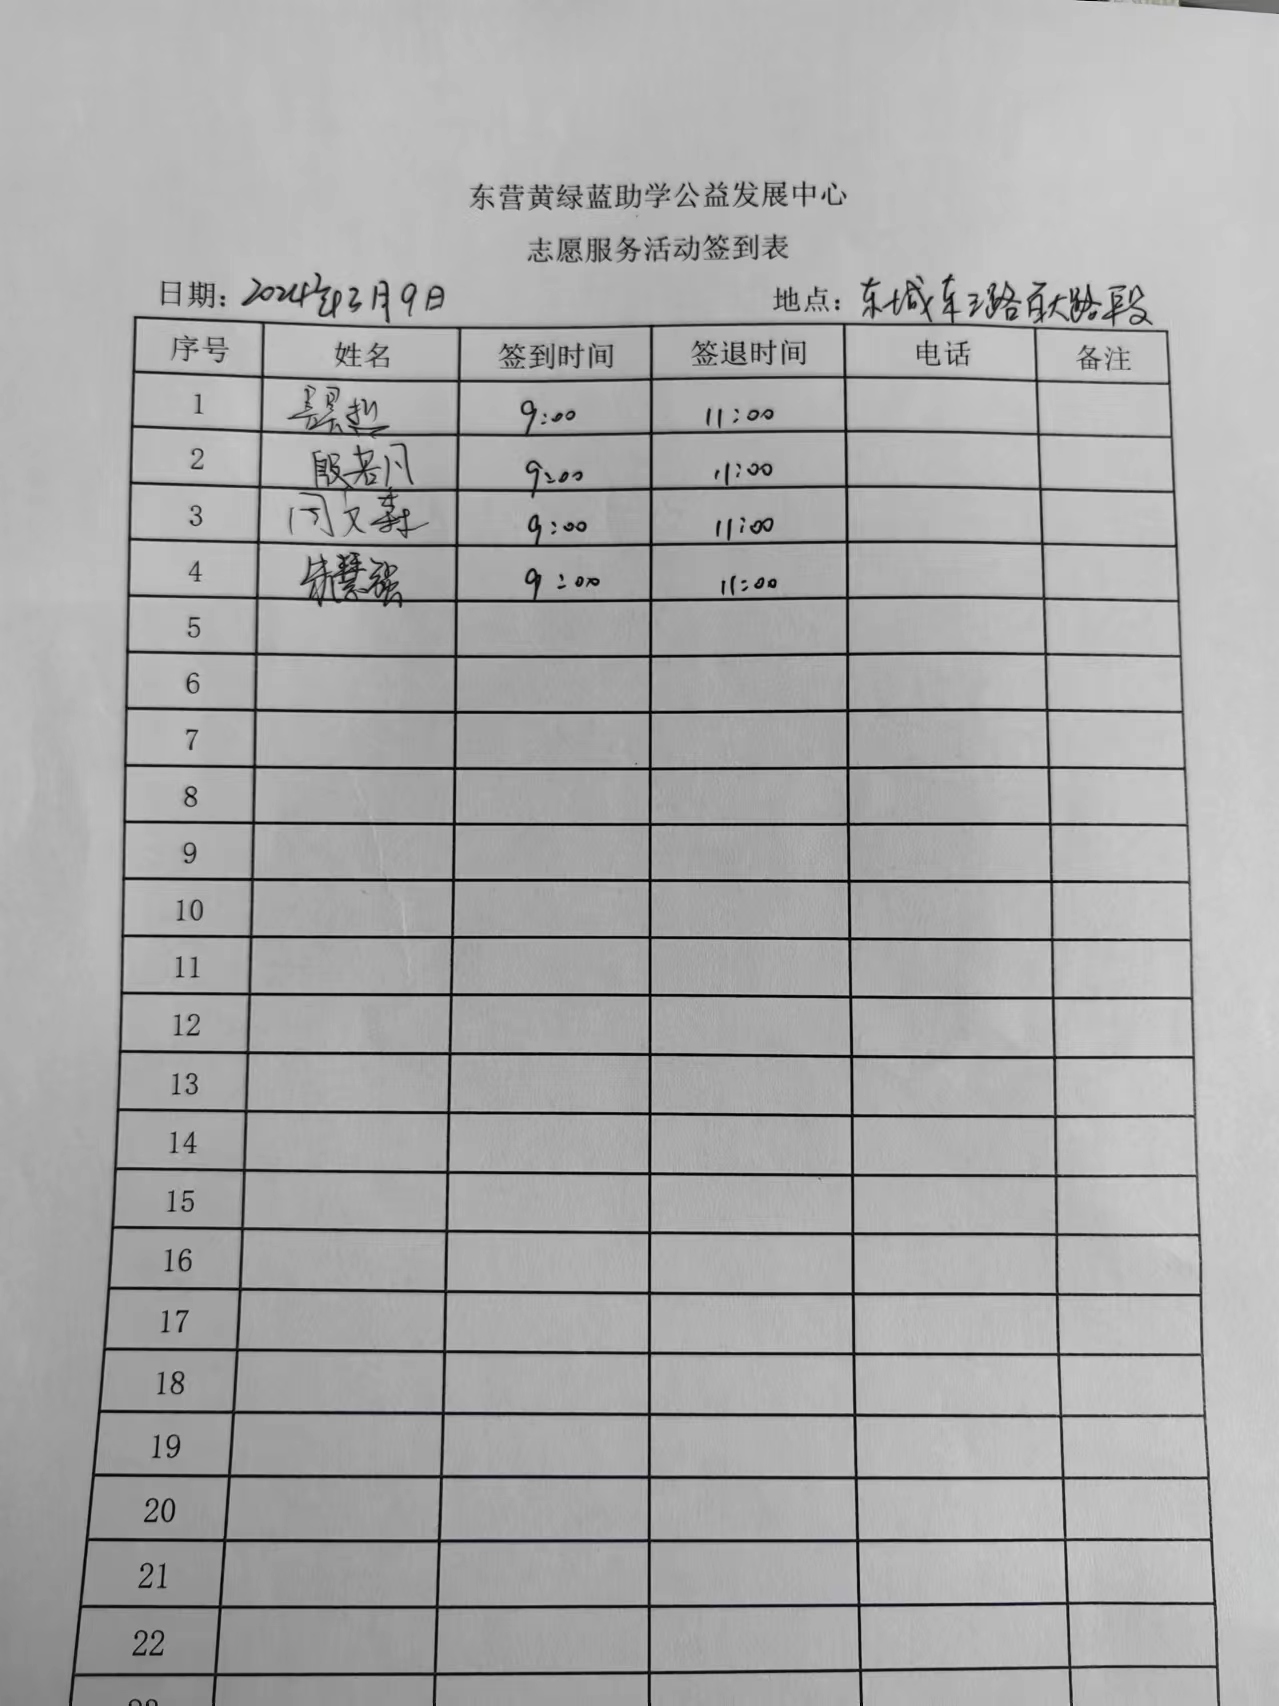 东营黄绿蓝助学公益发展中心
志愿服务活动签到表
日期：2024年3月9日 地点：东城东三路 路段
序号 姓名 签到时间 签退时间 电话 备注
1 9:00 11:00
2 殷若凡 9:00 11:00
3 闫文森 9:00 11:00
4 朱慧强 9:00 11:00
5
6
7
8
9
10
11
12
13
14
15
16
17
18
19
20
21
22